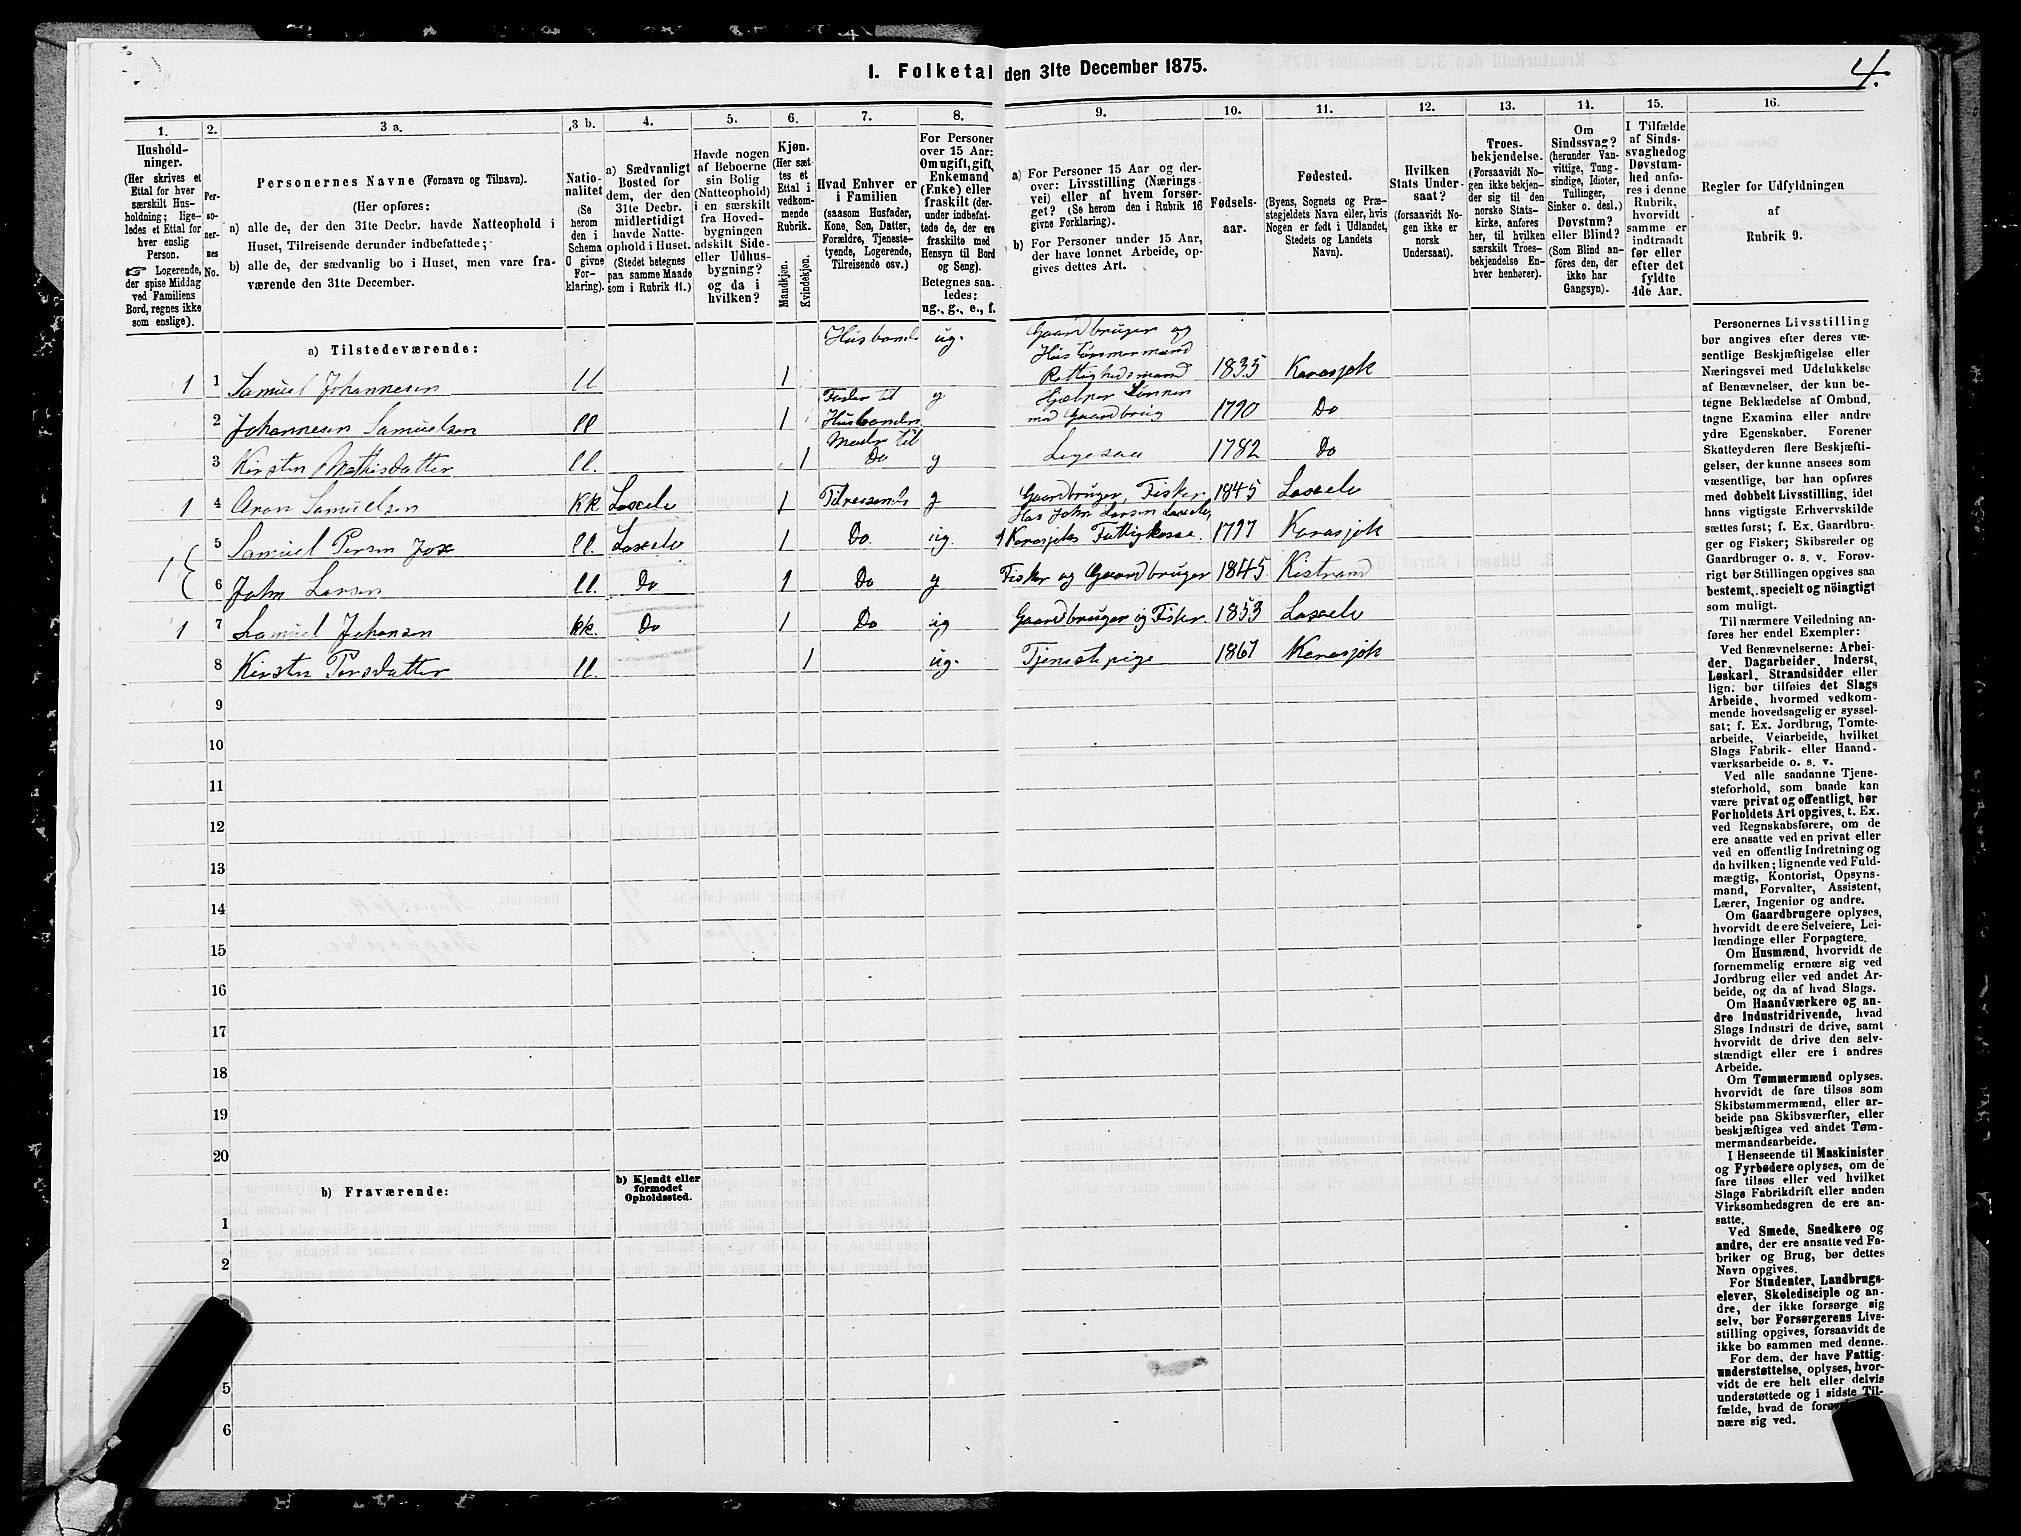 4.
I. Folketal den 31te December 1875.
1.
Hushold-
ninger.
(Her skrives et
Ettal for hver
særskilt Hus-
holdning; lige-
ledes et Ettal for
hver enslig
Person.
☞ Logerende,
der spise Middag
ved Familiens
Bord, regnes ikke
som enslige).
2.
Per-
so-
ner-
nes
No.
3 a.
Personernes Navne (Fornavn og Tilnavn).
(Her opføres:
a) alle de, der den 31te Decbr. havde Natteophold i
Huset, Tilreisende derunder indbefattede;
b) alle de, der sædvanlig bo i Huset, men vare fra-
værende den 31te December.
3 b.
Natio-
nalitet
(Se
herom
den i
Schema
C givne
For-
klaring).
4.
a) Sædvanligt
Bosted for
dem, der den
31te Decbr.
midlertidigt
havde Natte-
ophold i Huset.
(Stedet betegnes
paa samme Maade
som i Rubrik 11.)
5.
Havde nogen
af Beboerne
sin Bolig
(Natteophold)
i en særskilt
fra Hoved-
bygningen
adskilt Side-
eller Udhus-
bygning?
og da i
hvilken?
6.
Kjøn.
(Her sæt-
tes et
Ettal i
vedkom-
mende
Rubrik.
Mandkjøn.
Kvindekjøn.
7.
Hvad Enhver er
i Familien
(saasom Husfader,
Kone, Søn, Datter,
Forældre, Tjeneste-
tyende, Logerende,
Tilreisende osv.)
8.
For Personer
over 15 Aar:
Om ugift, gift,
Enkemand
(Enke) eller
fraskilt (der-
under indbefat-
tede de, der ere
fraskilte med
Hensyn til Bord
og Seng).
Betegnes saa-
ledes:
ug., g., e., f.
9.
a) For Personer 15 Aar og der-
over: Livsstilling (Nærings-
vei) eller af hvem forsør-
get? (Se herom den i Rubrik 16
givne Forklaring).
b) For Personer under 15 Aar,
der have lønnet Arbeide, op-
gives dettes Art.
10.
Fødsels-
aar.
11.
Fødested.
(Byens, Sognets og Præ-
stegjeldets Navn eller, hvis
Nogen er født i Udlandet,
Stedets og Landets
Navn).
12.
Hvilken
Stats Under-
saat?
(forsaavidt No-
gen ikke er
norsk
Undersaat).
13.
Troes-
bekjendelse.
(Forsaavidt No-
gen ikke bekjen-
der sig til den
norske Stats-
kirke, anføres
her, til hvilken
særskilt Troes-
bekjendelse En-
hver henhører).
14.
Om
Sindssvag?
(herunder Van-
vittige, Tung-
sindige, Idioter,
Tullinger,
Sinker o. desl.)
Døvstum?
eller Blind?
(Som Blind an-
føres den, der
ikke har
Gangsyn).
15.
I Tilfælde
af Sinds-
svaghed og
Døvstum-
hed anfø-
res i denne
Rubrik,
hvorvidt
samme er
indtraadt
før eller
efter det
fyldte
4de Aar.
16.
Regler for Udfyldningen
af
Rubrik 9.
a) Tilstedeværende:
1 1 Samuel Johannesen ll 1 Husbond ug. Gaardbruger og
Hustømmermand
1835 Karasjok
2 Johannesen Samuelsen ll 1 Fader til
Husbonden g Hjelper Sønnen
med Gaardbrug 1790 Do
3 Kirsten Mathisdatter ll. 1 Moder til
Do g Ligesaa 1782 Do
1 4 Aron Samuelsen KK Laxelv 1 Tilreisende g Gaardbruger, Fisker 1845 Laxelv
1 5 Samuel Persen ll. Laxelv 1 Do. ug. Hos John Larsen Laxelv,
af Karasjoks Fattigkasse. 1797 Karasjok
6 John Larsen ll. Do 1 Do g Fisker og Gaardbruger 1845 Kistrand
1 7 Samuel Johansen KK. Do 1 Do ug Gaardbruger og Fisker. 1853 Laxelv
8 Kirsten Persdatter ll. 1 ug. Tjenestepige 1861 Karasjok
9
10
11
12
13
14
15
16
17
18
19
20
b) Fraværende:
b) Kjendt eller
formodet
Opholdssted.
1
2
5
6
Personernes Livsstilling
bør angives efter deres væ-
sentlige Beskjæftigelse eller
Næringsvei med Udelukkelse
af Benævnelser, der kun be-
tegne Beklædelse af Ombud,
tagne Examina eller andre
ydre Egenskaber. Forener
Skatteyderen flere Beskjæfti-
gelser, der kunne ansees som
væsentlige, bør han opføres
med dobbelt Livsstilling, idet
hans vigtigste Erhvervskilde
sættes først; f. Ex. Gaardbru-
ger og Fisker; Skibsreder og
Gaardbruger o. s. v. Forøv-
rigt bør Stillingen opgives saa
bestemt, specielt og nöiagtigt
som muligt.
Til nærmere Veiledning an-
føres her endel Exempler:
Ved Benævnelserne: Arbei-
der, Dagarbeider, Inderst,
Løskarl, Strandsidder eller
lign. bør tilføies det Slags
Arbeide, hvormed vedkom-
mende hovedsagelig er syssel-
sat; f. Ex. Jordbrug, Tomte-
arbeide, Veiarbeide, hvilket
Slags Fabrik- eller Haand-
værksarbeide o. s. v.
Ved alle saadanne Tjene-
steforhold, som baade kan
være privat og offentligt, bør
Forholdets Art opgives, t. Ex.
ved Regnskabsførere, om de
ere ansatte ved en privat eller
ved en offentlig Indretning og
da hvilken; lignende ved Fuld-
mægtig, Kontorist, Opsyns-
mand, Forvalter, Assistent,
Lærer, Ingeniør og andre.
Om Gaardbrugere oplyses,
hvorvidt de ere Selveiere, Lei-
lændinge eller Forpagtere.
Om Husmænd, hvorvidt de
fornemmelig ernære sig ved
Jordbrug eller ved andet Ar-
beide, og da af hvad Slags.
Om Haandværkere og an-
dre Industridrivende, hvad
Slags Industri de drive, samt
hvorvidt de drive den selv-
stændigt eller ere i andres
Arbeide.
Om Tømmermænd oplyses,
hvorvidt de fare tilsøs som
Skibstømmermænd, eller ar-
beide paa Skibsværfter, eller
beskjæftiges ved andet Tøm-
mermandsarbeide.
I Henseende til Maskinister
og Fyrbødere oplyses, om de
fare tilsøs eller ved hvilket
Slags Fabrikdrift eller anden
Virksomhedsgren de ere an-
satte.
Ved Smede, Snedkere og
andre, der ere ansatte ved Fa-
briker og Brug, bør dettes
Navn opgives.
For Studenter, Landbrugs-
elever, Skoledisciple og an-
dre, der ikke forsørge sig
selv, bør Forsørgerens Livs-
stilling opgives, forsaavidt de
ikke bo sammen med denne.
For dem, der have Fattig-
understøttelse, oplyses, hvor-
vidt de ere helt eller delvis
understøttede og i sidste Til-
fælde, hvad de
nære sig ved.